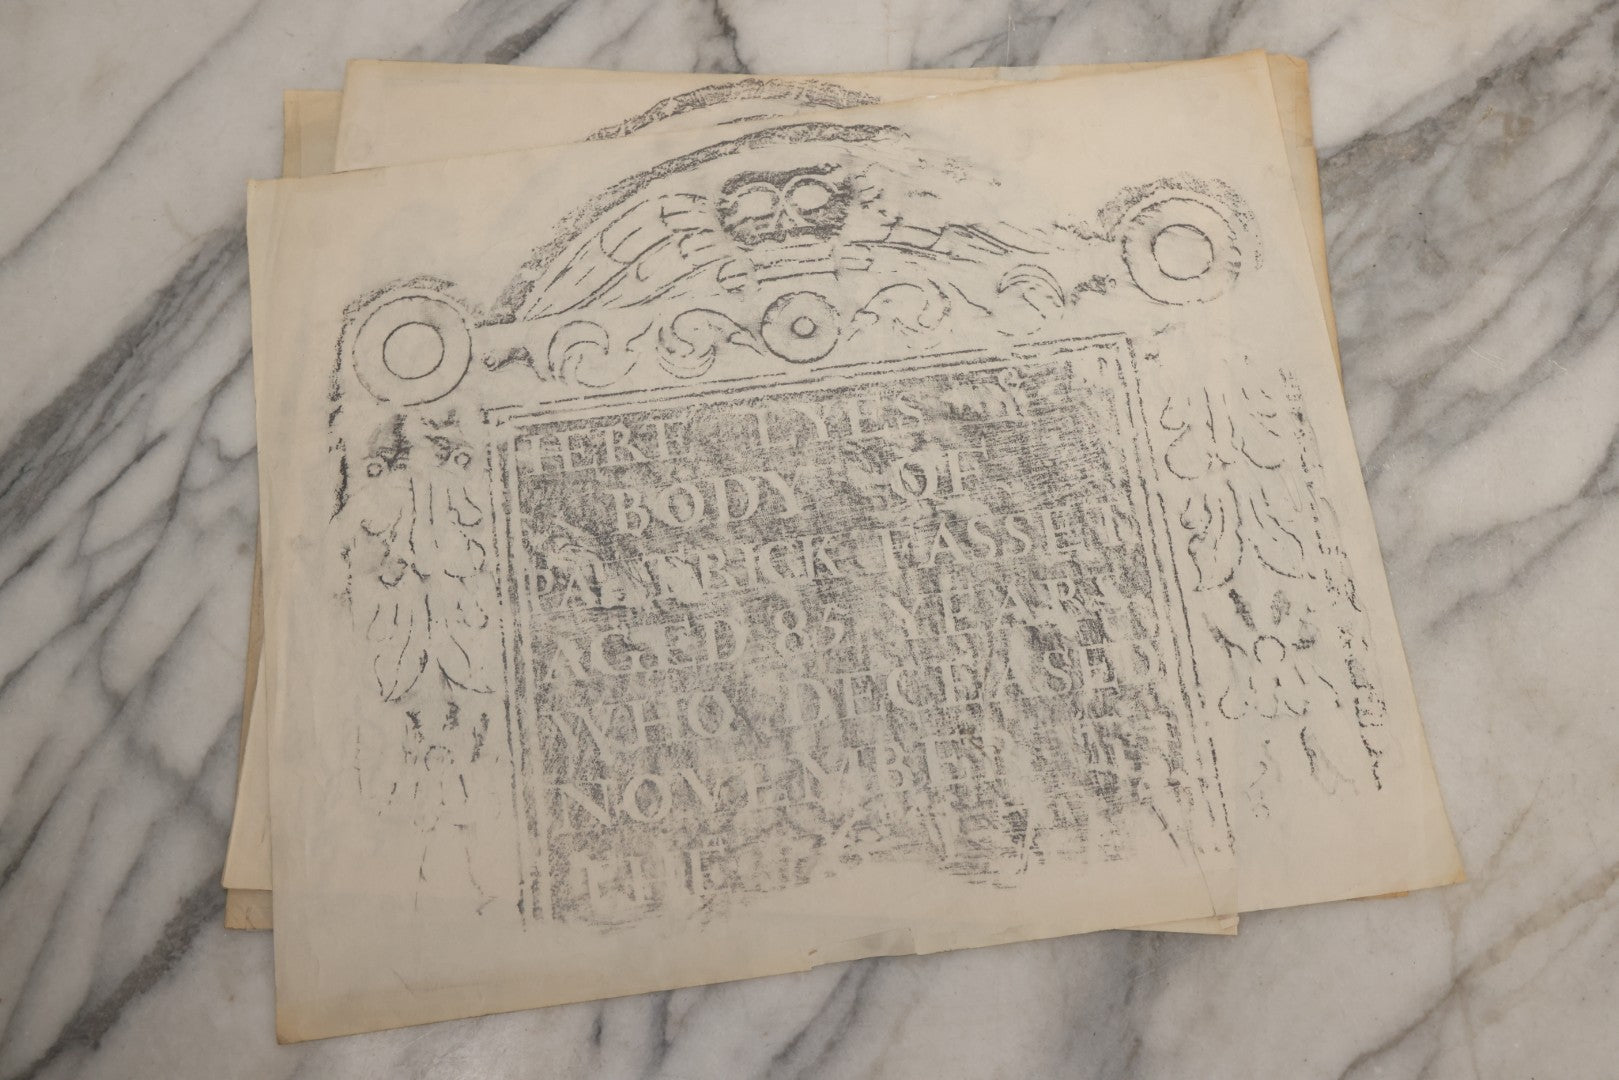 HERE LYES Yᴱ
BODY OF
PATRRICK FASSETT
AGED 85 YEARS
WHO DECEASED
NOVEMBER THE
THE